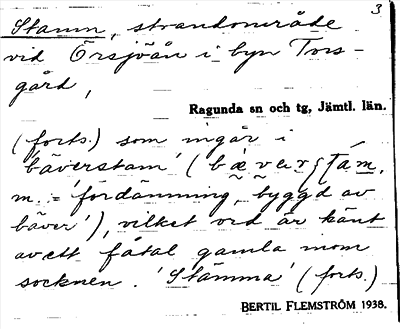 3
Stamm, strandområde
vid Örsjöån i byn Tors-
gård,
Ragunda sn och tg, Jämtl. län.
(forts.) som ingår i
'bäverstam' (
m. = 'fördämning, byggd av
bäver'), vilket ord är känt
av ett fåtal gamla inom
socknen. 'Stämma' (forts.)
BERTIL FLEMSTRÖM 1938.